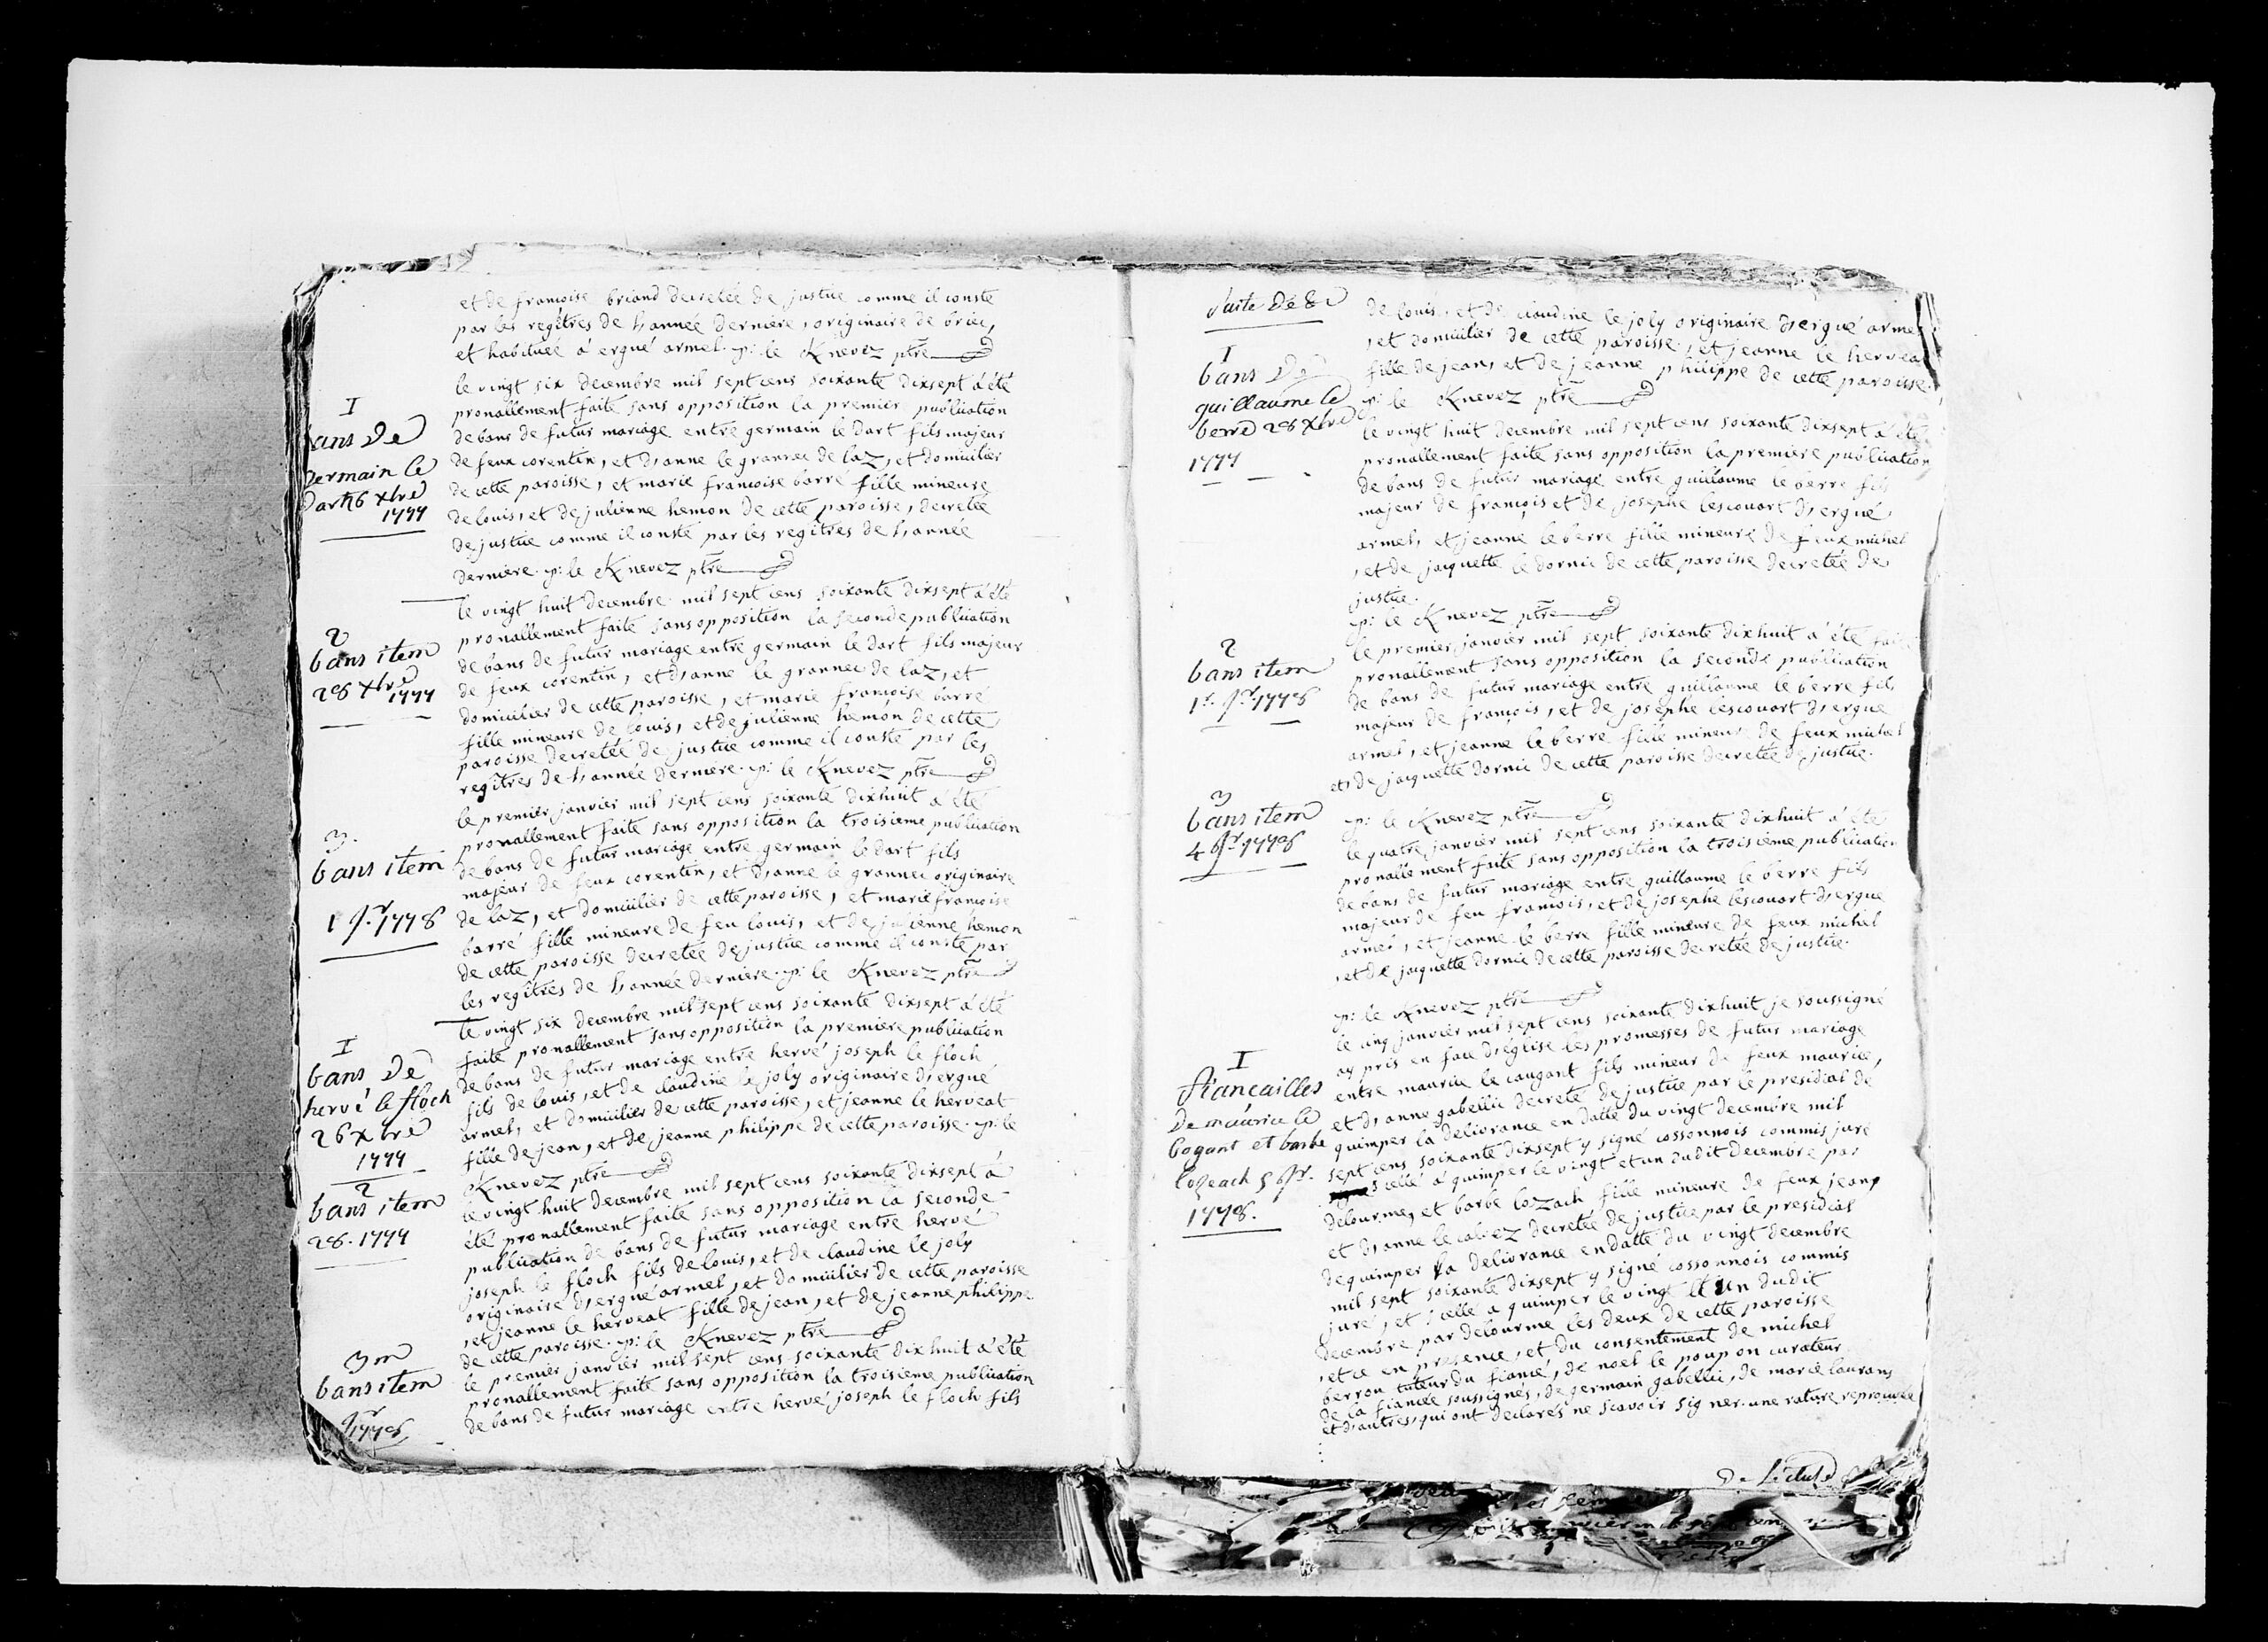 et de francoise briand decretée de justice comme il conste
par les regîtres de h,année derniere, originaire de briec,
et habituée à ergué armel. p: le Knevez ptre
I
bans De
germain le
Dart 26 xbre
1777
le vingt six decembre mil sept cens soixante dixsept a été
pronallement faite sans opposition la premier publication
de bans de futur mariage entre germain le dart fils majeur
de feux corentin, et d,anne le grannec de laz, et domicilier
de cette paroisse, et marie francoise barre fille mineure
de louis, et de julienne hemon de cette paroisse, decretée
de justice comme il conste par les regîtres de h,année
derniere. p: le Knevez ptre
2
bans item
28 xbre
1777
le vingt huit decembre mil sept cens soixante dixsept a été
pronallement faite sans opposition la seconde publication
de bans de futur mariage entre germain le dart fils majeur
de feux corentin, et d,anne le grannec de laz, et
domicilier de cette paroisse, et marie francoise barré
fille mineure de louis, et de julienne hemon de cette
paroisse decretée de justice comme il conste par les
regîtres de h,année derniere. p: le Knevez ptre
3.
bans item
1 jr. 1778
le premier janvier mil sept cens soixante dixhuit a été
pronallement faite sans opposition la troisieme publication
de bans de futur mariage entre germain le dart fils
majeur de feux corentin, et d,anne le grannec originaire
de laz, et domicilier de cette paroisse, et marie francoise
barré fille mineure de feu louis, et de julienne hemon
de cette paroisse decretée de justice comme il conste par
les regîtres de h,année derniere. p: le Knevez ptre
I
bans De
hervé le floch
26 xbre
1777
le vingt six decembre mil sept cens soixante dixsept a été
faite pronallement sans opposition la premiere publication
de bans de futur mariage entre hervé joseph le floch
fils de louis, et de claudine le joly originaire d,ergué
armel, et domicilier de cette paroisse, et jeanne le herveat
fille de jean, et de jeanne philippe de cette paroisse. p: le
Knevez ptre
2
bans item
28. 1777
le vingt huit decembre mil sept cens soixante dixsept a
été pronallement faite sans opposition la seconde
publication de bans de futur mariage entre hervé
joseph le floch fils de louis, et de claudine le joly
originaire d,ergué armel, et domicilier de cette paroisse
, et jeanne le herveat fille de jean, et de jeanne philippe
de cette paroisse. p: le Knevez ptre
3m
bans item
jr 1778
le premier janvier mil sept cens soixante dix huit a été
pronallement faite sans opposition la troisieme publication
de bans de futur mariage entre hervé joseph le floch fils
suite De
de louis, et de claudine le joly originaire d,ergué armel
, et domicilier de cette paroisse, et jeanne le herveat
fille de jean, et de jeanne philippe de cette paroisse.
p: le Knevez ptre
I
bans De
guillaume le
berre 28 xbre
1777
le vingt huit decembre mil sept cens soixante dixsept a été
pronallement faite sans opposition la premiere publication
de bans de futur mariage entre guillaume le berre fils
majeur de françois et de josephe lescouart d,ergué
armel, et jeanne le berre fille mineure de feux michel
, et de jacquette le dornic de cette paroisse decretée de
justice.
p: le Knevez ptre
2
bans item
1r. jr. 1778
le premier, janvier mil sept soixante dixhuit a été faite
pronallement sans opposition la seconde publication
de bans de futur mariage entre guillaume le berre fils
majeur de francois, et de josephe lescouart d,ergue
armel, et jeanne le berre fille mineur de feux michel
et de jacquette dornic de cette paroisse decretée de justice.
p: le Knevez ptre
3
bans item
4 jr. 1778
le quatre janvier mil sept cens soixante dixhuit a été
pronallement faite sans opposition la troisieme publication
de bans de futur mariage entre guillaume le berre fils
majeur de feu francois, et de josephe lescouart d,ergue
armel, et jeanne le berre fille mineure de feux michel
, et de jacquette dornic de cette paroisse decretée de justice.
p: le Knevez ptre
I
fiancailles
De maurice le
cogant et barbe
lozeach 5 jr.
1778.
le cinq janvier mil sept cens soixante dixhuit je soussigné
ay pris en face d,église les promesses de futur mariage
entre maurice le caugant fils mineur de feux maurice,
et d,anne gabellic decreté de justice par le presidial de
quimper la delivrance en datte du vingt decembre mil
sept cens soixante dixsept y signé cossonnois commis juré
scellé à quimper le vingt et un dudit decembre par
delourme, et barbe lozach fille mineure de feux jean
et d,anne le calvez decretée de justice par le presidial
de quimper la delivrance en datte du vingt decembre
mil sept soixante dixsept y signé cossonnois commis
juré, et scellé a quimper le vingt et un dudit
decembre par delourme les deux de cette paroisse
, et ce en presence, et du consentement de michel
berrou tuteur du fiancé, de noel le poupon curateur
de la fiancée soussignés, de germain gabellic, de marie laurans
et d,autres, qui ont declarés ne scavoir signer. une rature reprouvée